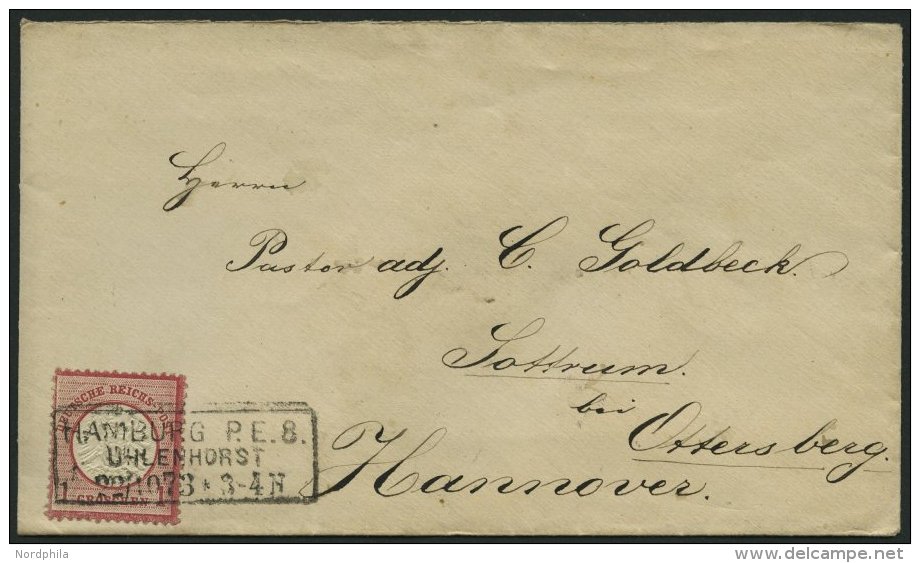 Herrn
Pastor adj. C. Goldbeck.
Sottrum.
bei
Ottersberg.
Hannover.
DEUTSCHE REICHS-POST
HAMBURG P.E.8.
UHLENHORST
10 73 * 3-4 N
1 GROSCHEN
Nordphila
delcampe.net